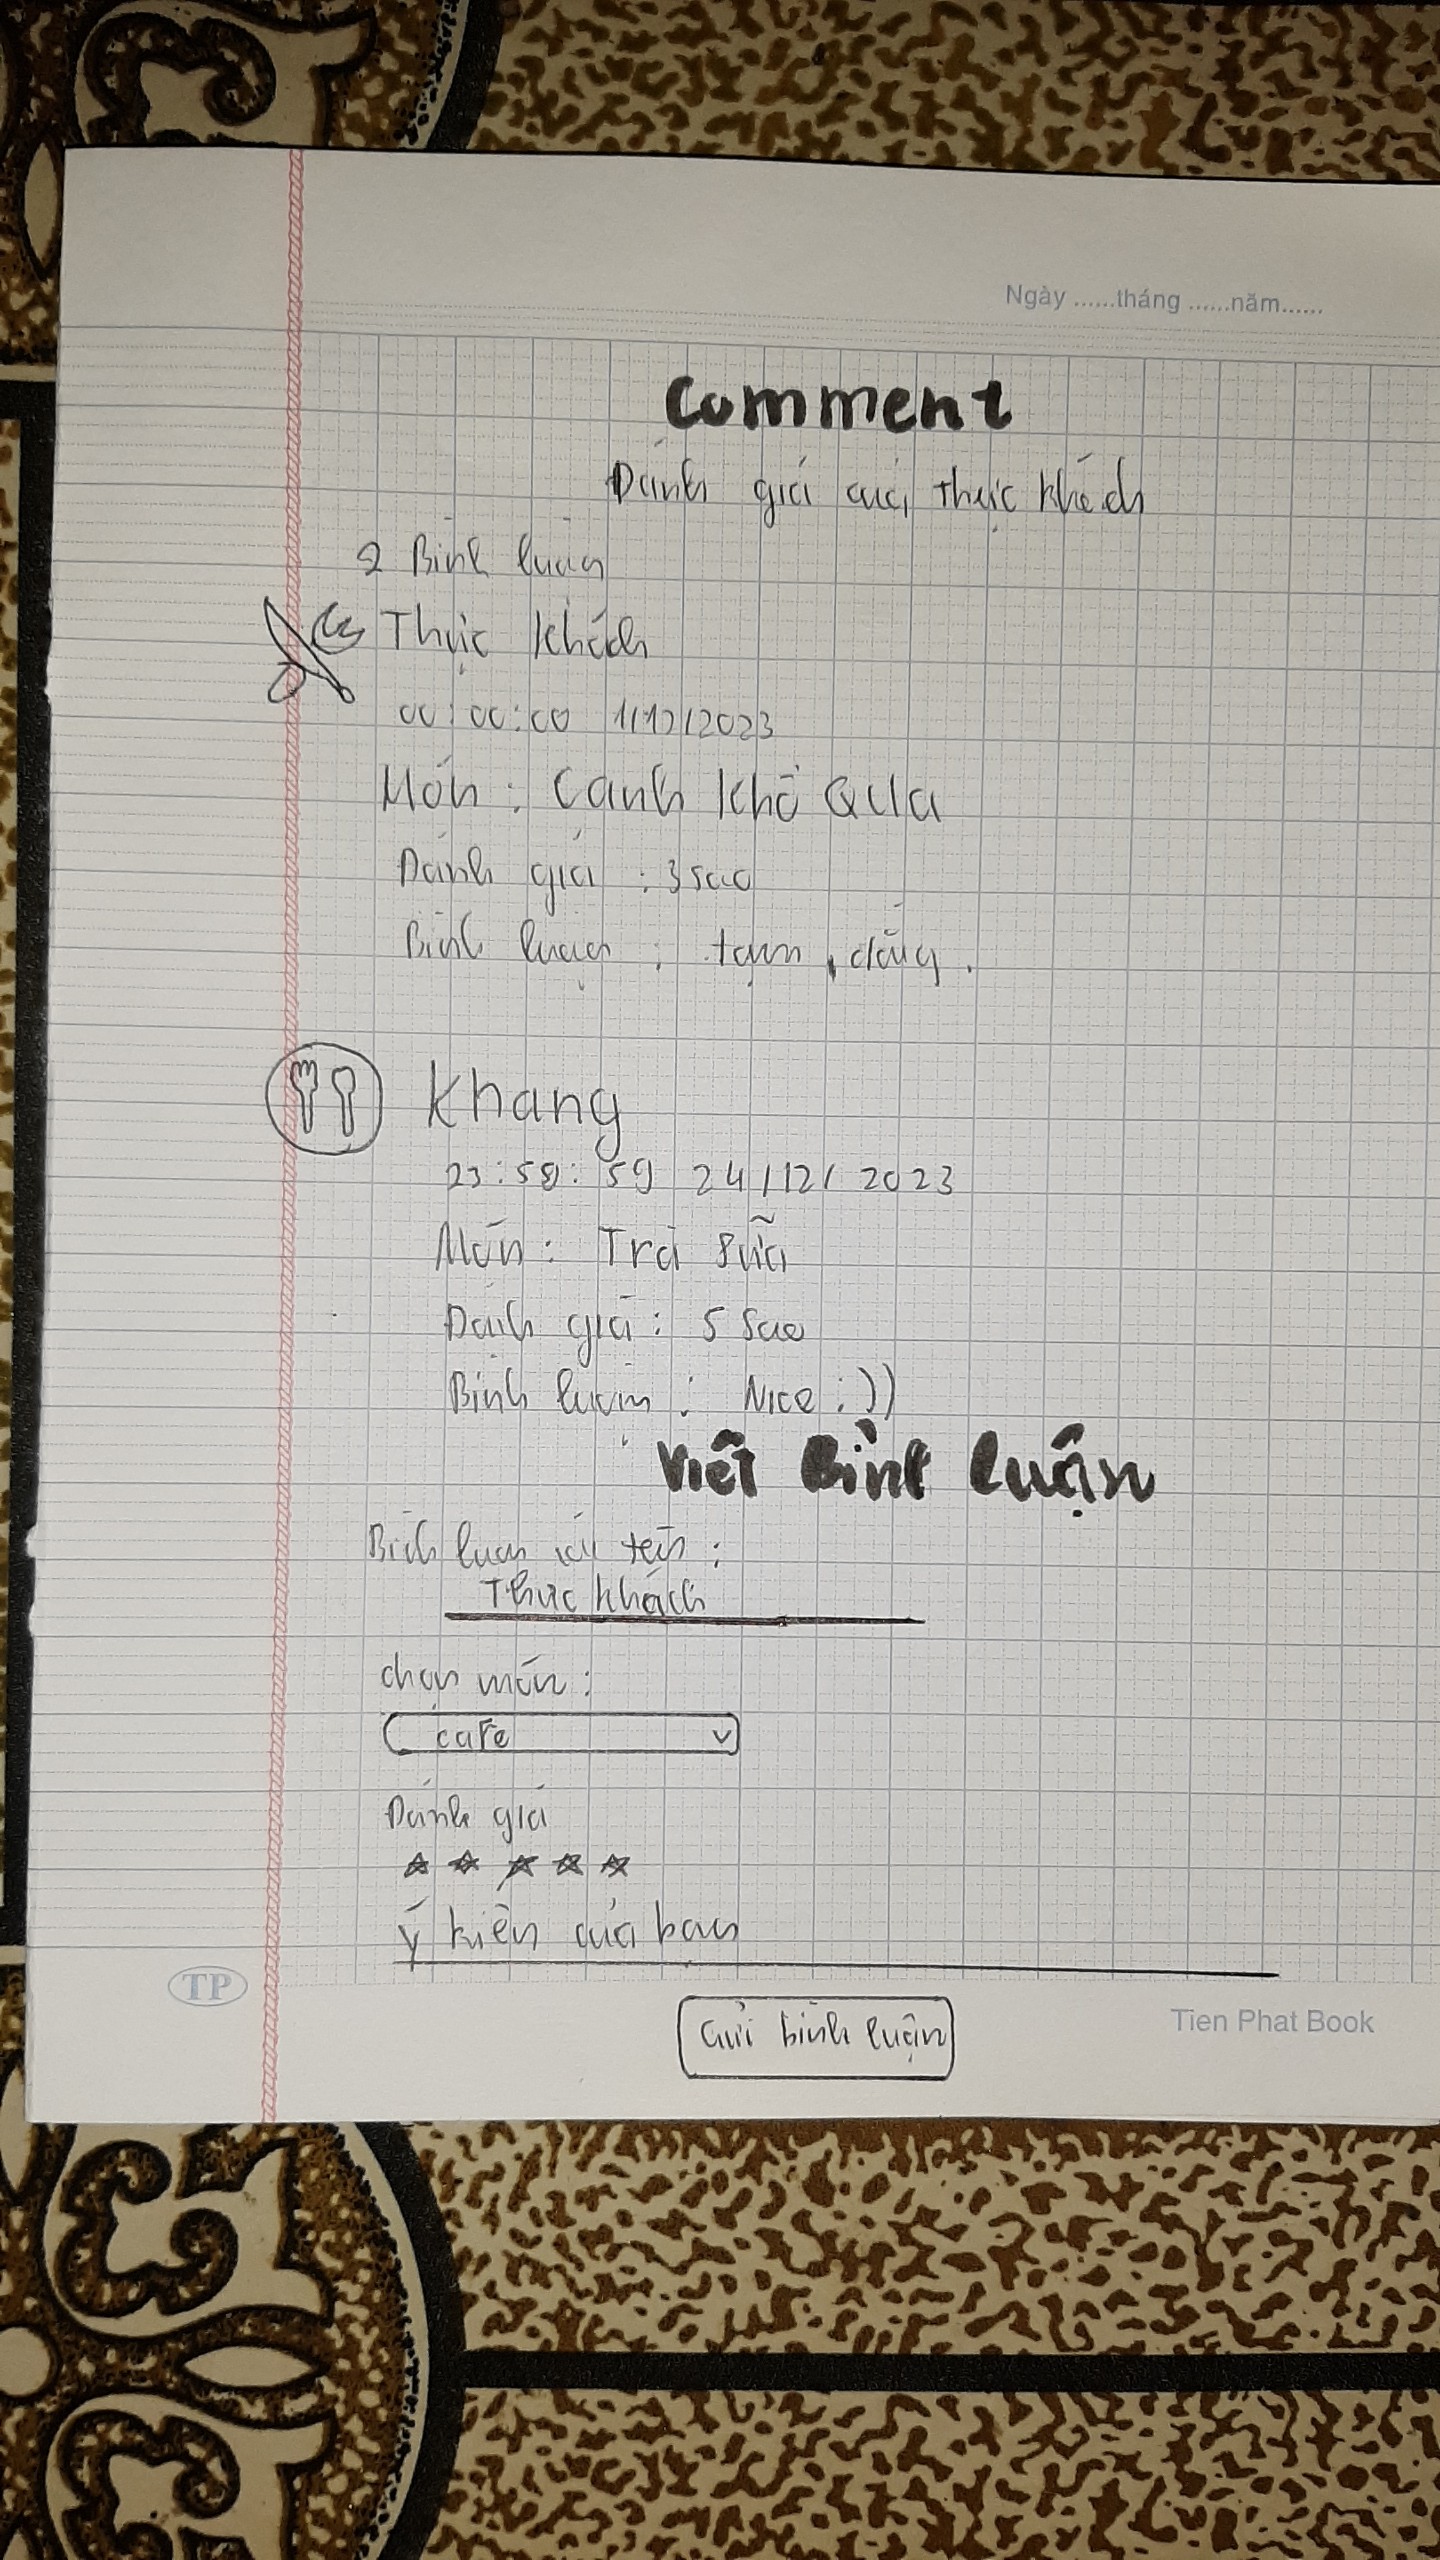 Ngày ......tháng ......năm......
Comment
Đánh giá của thực khách
2 Bình luận
Thực khách
00:00:00 1/12/2023
Món: Canh Khổ Qua
Đánh giá: 3 sao
Bình luận: tạm, đắng.
Khang
23:59:59 24/12/2023
Món: Trà Sữa
Đánh giá: 5 Sao
Bình luận: Nice :))
Viết Bình luận
Bình luận với tên:
Thực khách
chọn món:
cafe
Đánh giá
Ý kiến của bạn
TP
Tien Phat Book
Gửi bình luận